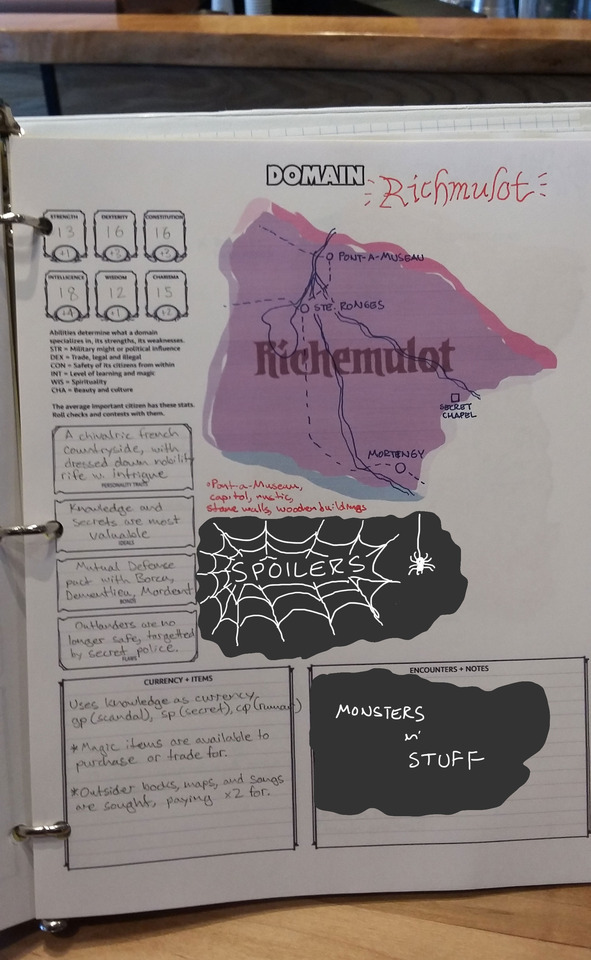 DOMAIN
Richmulot
STRENGTH
13
+1
DEXTERITY
16
+3
CONSTITUTION
16
+3
INTELLIGENCE
18
+4
WISDOM
12
+1
CHARISMA
15
+2
Abilities determine what a domain
specializes in, its strengths, its weaknesses.
STR = Military might or political influence
DEX = Trade, legal and illegal
CON = Safety of its citizens from within
INT = Level of learning and magic
WIS = Spirituality
CHA = Beauty and culture
The average important citizen has these stats.
Roll checks and contests with them.
A chivalric french
countryside, with
dressed down nobility
rife w. intrigue
PERSONALITY TRAITS
Knowledge and
Secrets are most
valuable
IDEALS
Mutual Defense
pact with Borca,
Dementlieu, Mordent
BONDS
Outlanders are no
longer safe, targetted
by secret police.
FLAWS
PONT-A-MUSEAU
STE. RONGES
Richemulot
SECRET
CHAPEL
MORTENGY
*Pont-a-Museau,
capitol, rustic,
stone walls, wooden buildings
SPOILERS
CURRENCY + ITEMS
Uses knowledge as currency,
gp (scandal), sp (secret), cp (rumor)
* Magic items are available to
purchase or trade for.
* Outsider books, maps, and songs
are sought, paying x2 for.
ENCOUNTERS + NOTES
MONSTERS
n'
STUFF